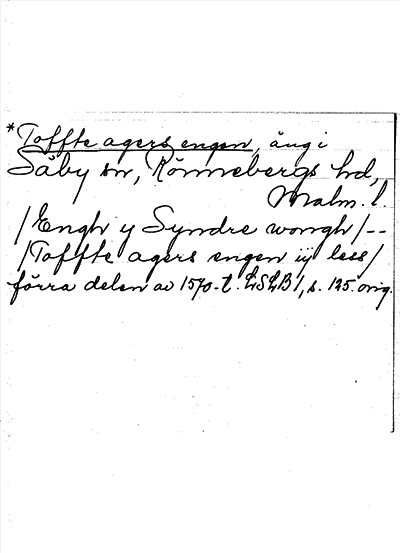 *Toffte agers engen, äng i
Säby sn, Rönnebergs hd,
Malm. l.
/Engh y Syndre wongh/--
/Toffte agers engen iij less/
förra delen av 1570-t. LSLB1, s. 125. orig.